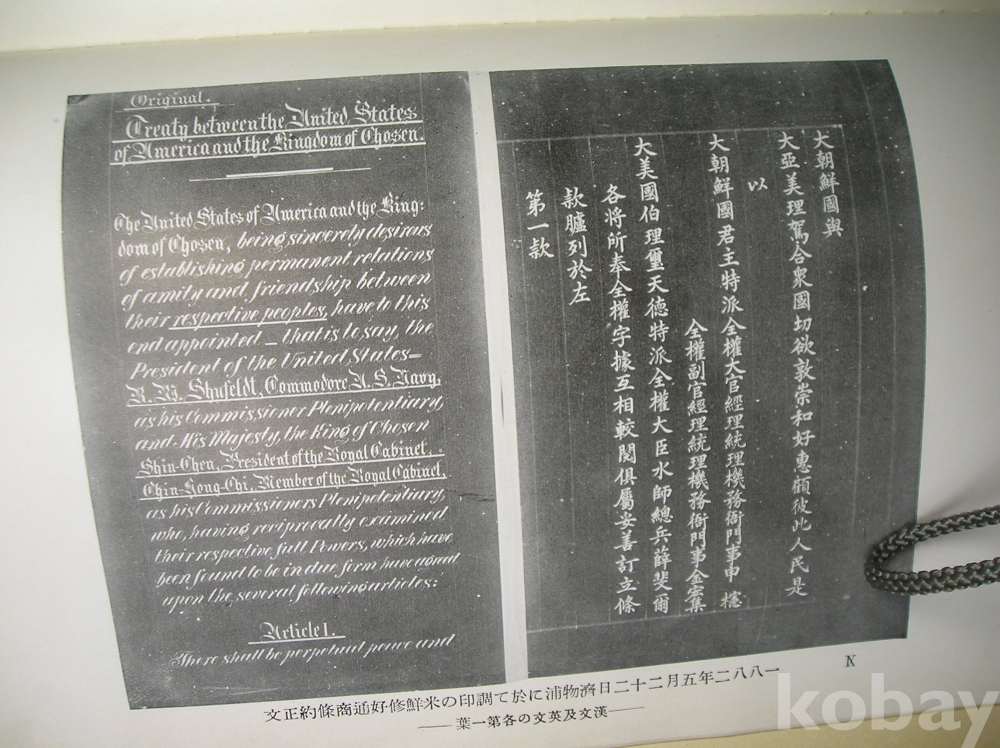 Original.
Treaty between the United States
of America and the Kingdom of Chosen.
The United States of America and the King-
dom of Chosen, being sincerely desirous
of establishing permanent relations
of amity and friendship between
their respective peoples, have to this
end appointed _ that is to say, the
President of the United States=
R. W. Shufeldt, Commodore U. S. Navy,
as his Commissioner Plenipotentiary,
and His Majesty, the King of Chosen
Shin-Chen, President of the Royal Cabinet, -
Chin-Hong-Chi, Member of the Royal Cabinet,
as his Commissioners Plenipotentiary,
who, having reciprocally examined
their respective full Powers, which have
been found to be in due form have agreed
upon the several following articles:
Article I.
There shall be perpetual peace and
大朝鮮國與
大亞美理駕合衆國切欲敦崇和好惠顧彼此人民是
以
大朝鮮國君主特派全權大官經理統理機務衙門事申櫶
全權副官經理統理機務衙門事金宏集
大美國伯理璽天德特派全權大臣水師總兵薛斐爾
各將所奉全權字據互相較閱俱屬妥善訂立條
款臚列於左
第一款
K
一八八二年五月二十二日濟物浦に於て調印の米鮮修好通商條約正文
——漢文及英文の各第一葉——
kobay